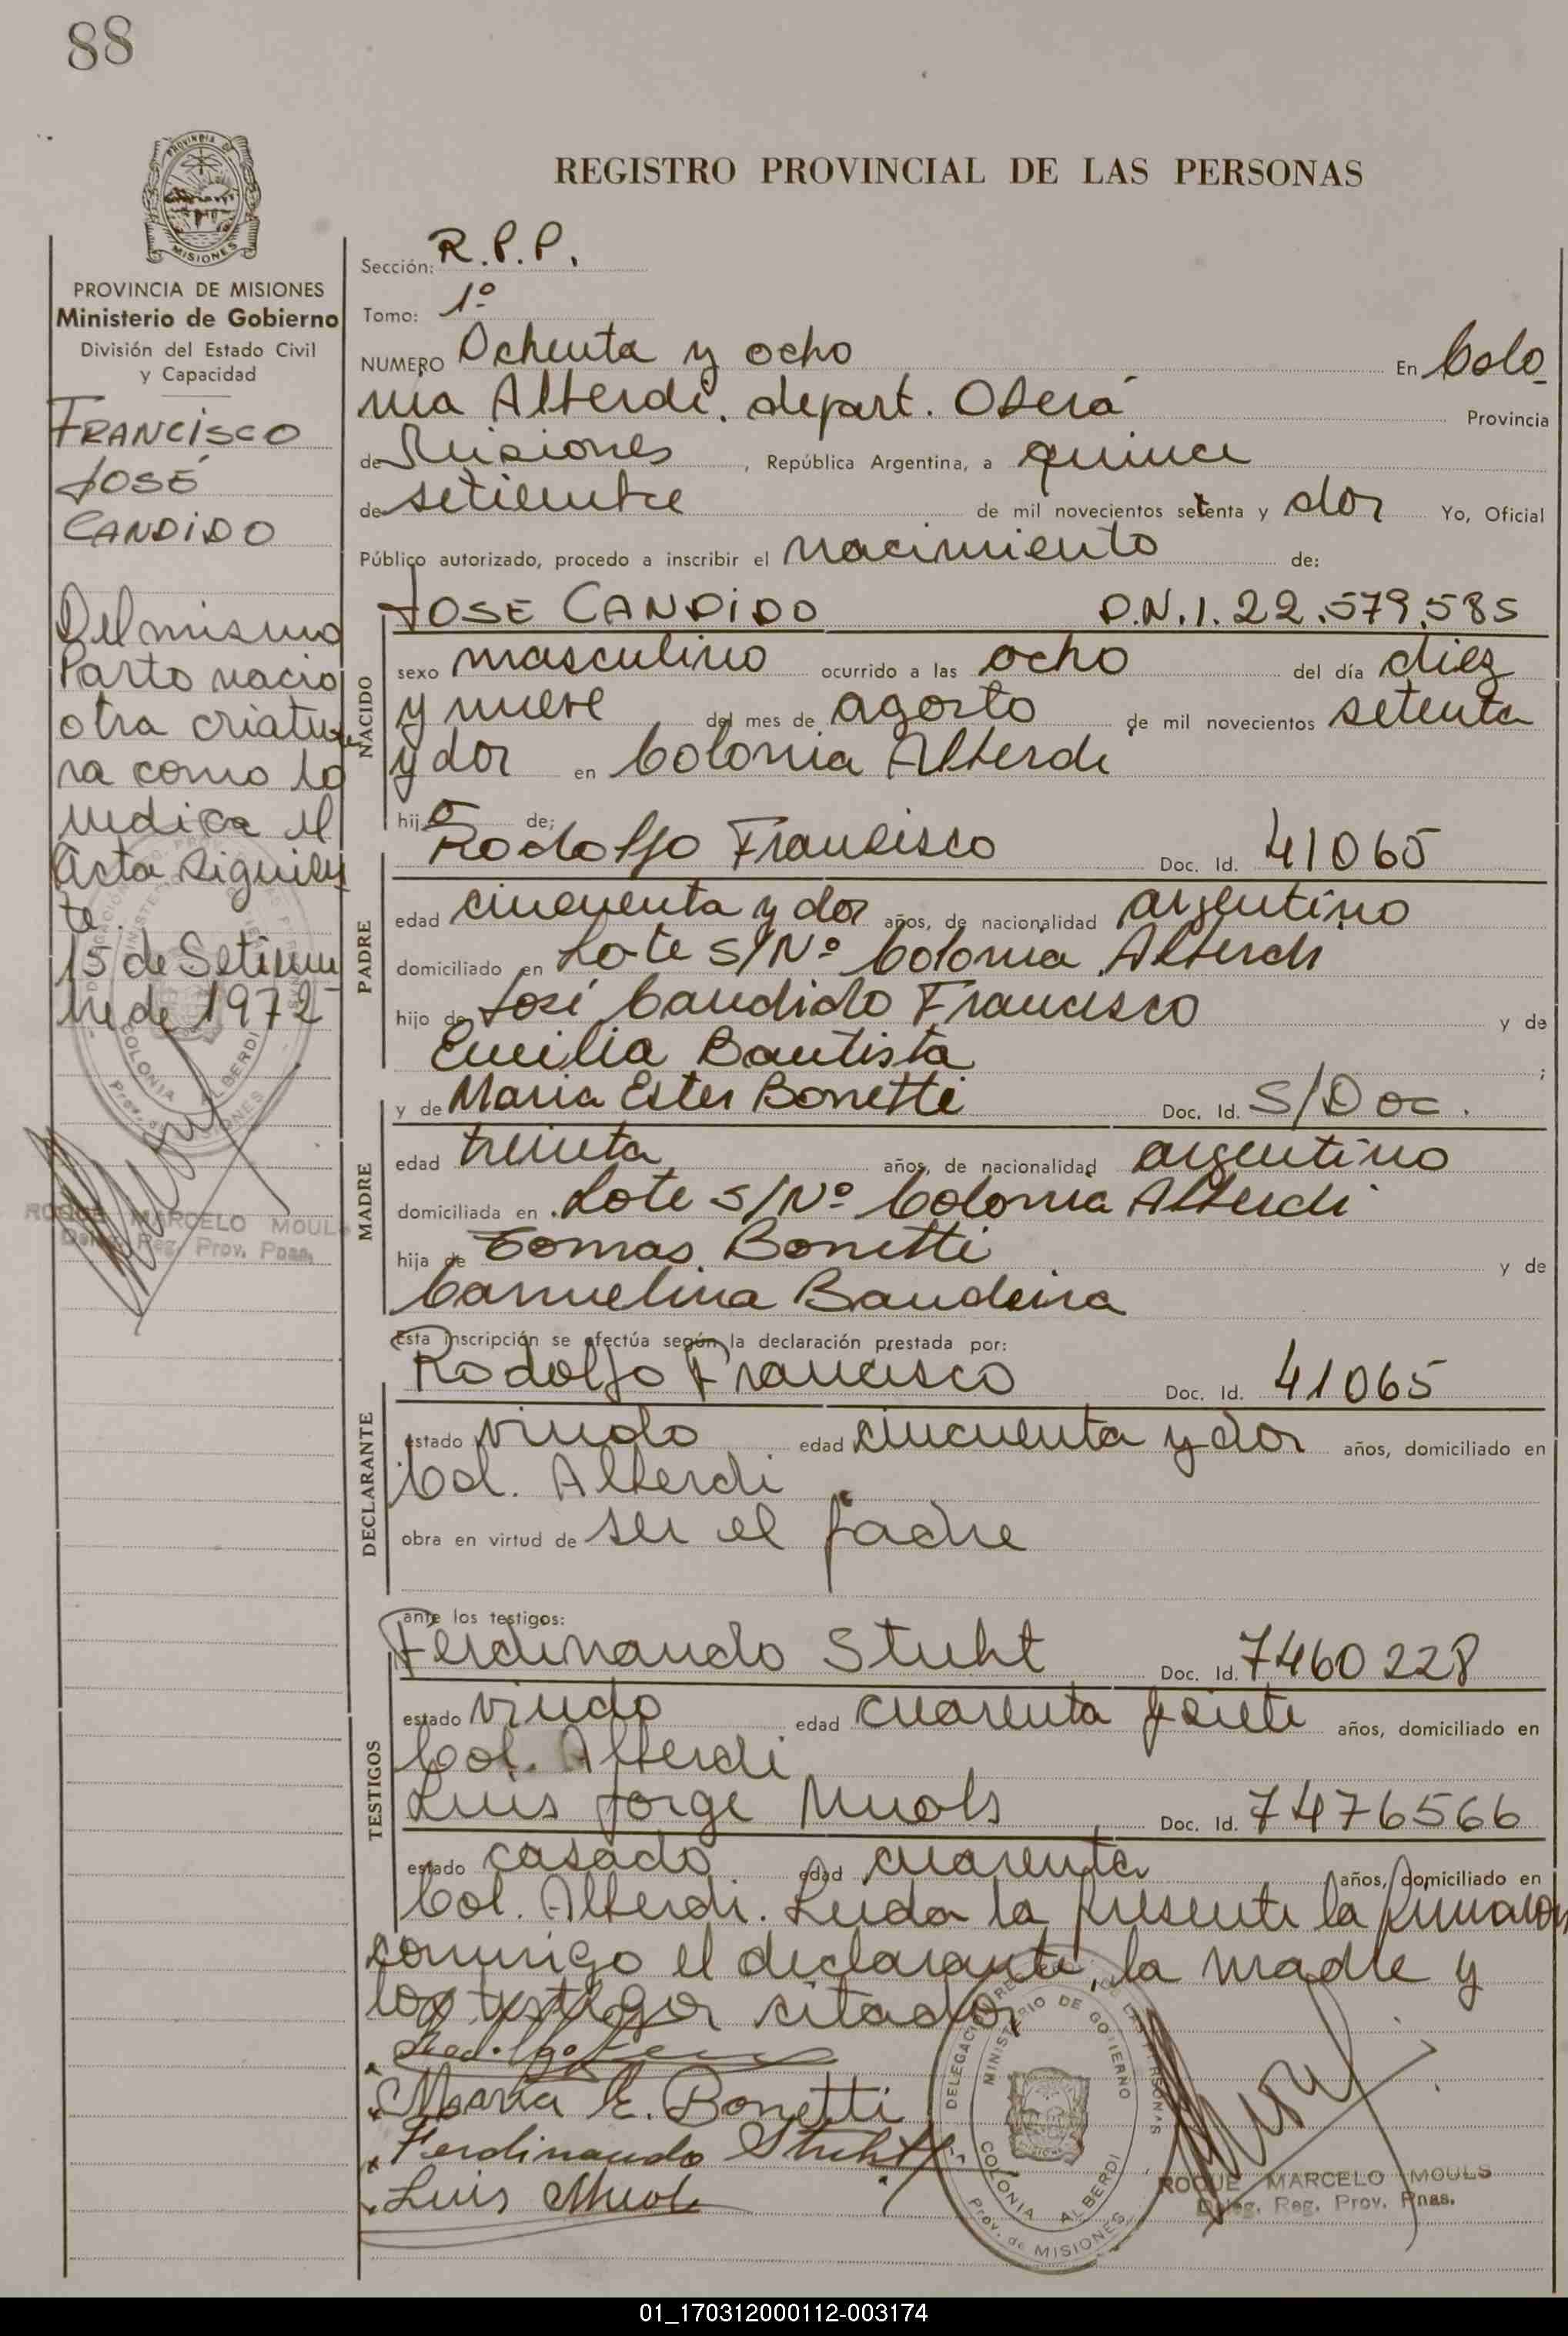 88
PROVINCIA DE
MISIONES
REGISTRO PROVINCIAL DE LAS PERSONAS
PROVINCIA DE MISIONES
Ministerio de Gobierno
División del Estado Civil
y Capacidad
FRANCISCO
JOSÉ
CANDIDO
Del mismo
Parto nacio
otra criatu
ra como lo
indica el
Acta siguien
te.
15 de Setiem
bre de 1972
COLONIA ALBERDI
ROQUE MARCELO MOULS
Deleg. Reg. Prov. Pnas.
Sección: R.P.P.
Tomo: 1º
NUMERO Ochenta y ocho En Colo
nia Alberdi. depart. Oberá Provincia
de Misiones, República Argentina, a quince
de setiembre de mil novecientos setenta y dos Yo, Oficial
Público autorizado, procedo a inscribir el nacimiento de:
JOSE CANDIDO D.N.I. 22.579.585
NACIDO
sexo masculino ocurrido a las ocho del día diez
y nueve del mes de agosto de mil novecientos setenta
y dos en Colonia Alberdi
hijo de:
PADRE
Rodolfo Francisco Doc. Id. 41065
edad cincuenta y dos años, de nacionalidad argentino
domiciliado en Lote S/Nº Colonia Alberdi
hijo de José Candido Francisco y de
Emilia Bautista ;
MADRE
y de Maria Ester Bonetti Doc. Id. S/Doc.
edad treinta años, de nacionalidad argentino
domiciliada en Lote S/Nº Colonia Alberdi
hija de Tomas Bonetti y de
Carmelina Bandeira
Esta inscripción se efectúa según la declaración prestada por:
DECLARANTE
Rodolfo Francisco Doc. Id. 41065
estado viudo edad cincuenta y dos años, domiciliado en
Col. Alberdi
obra en virtud de ser el padre
ante los testigos:
TESTIGOS
Ferdinando Stuht Doc. Id. 7460228
estado viudo edad cuarenta y siete años, domiciliado en
Col. Alberdi
Luis Jorge Muols Doc. Id. 7476566
estado casado edad cuarenta años, domiciliado en
Col. Alberdi. Leida la presente la firmaron
conmigo el declarante, la madre y
los testigos citados
Maria E. Bonetti
Ferdinando Stuht
Luis Muols
DELEGACION REG. DE LAS PERSONAS
MINISTERIO DE GOBIERNO
COLONIA ALBERDI
Prov. de MISIONES
ROQUE MARCELO MOULS
Deleg. Reg. Prov. Pnas.
01_170312000112-003174